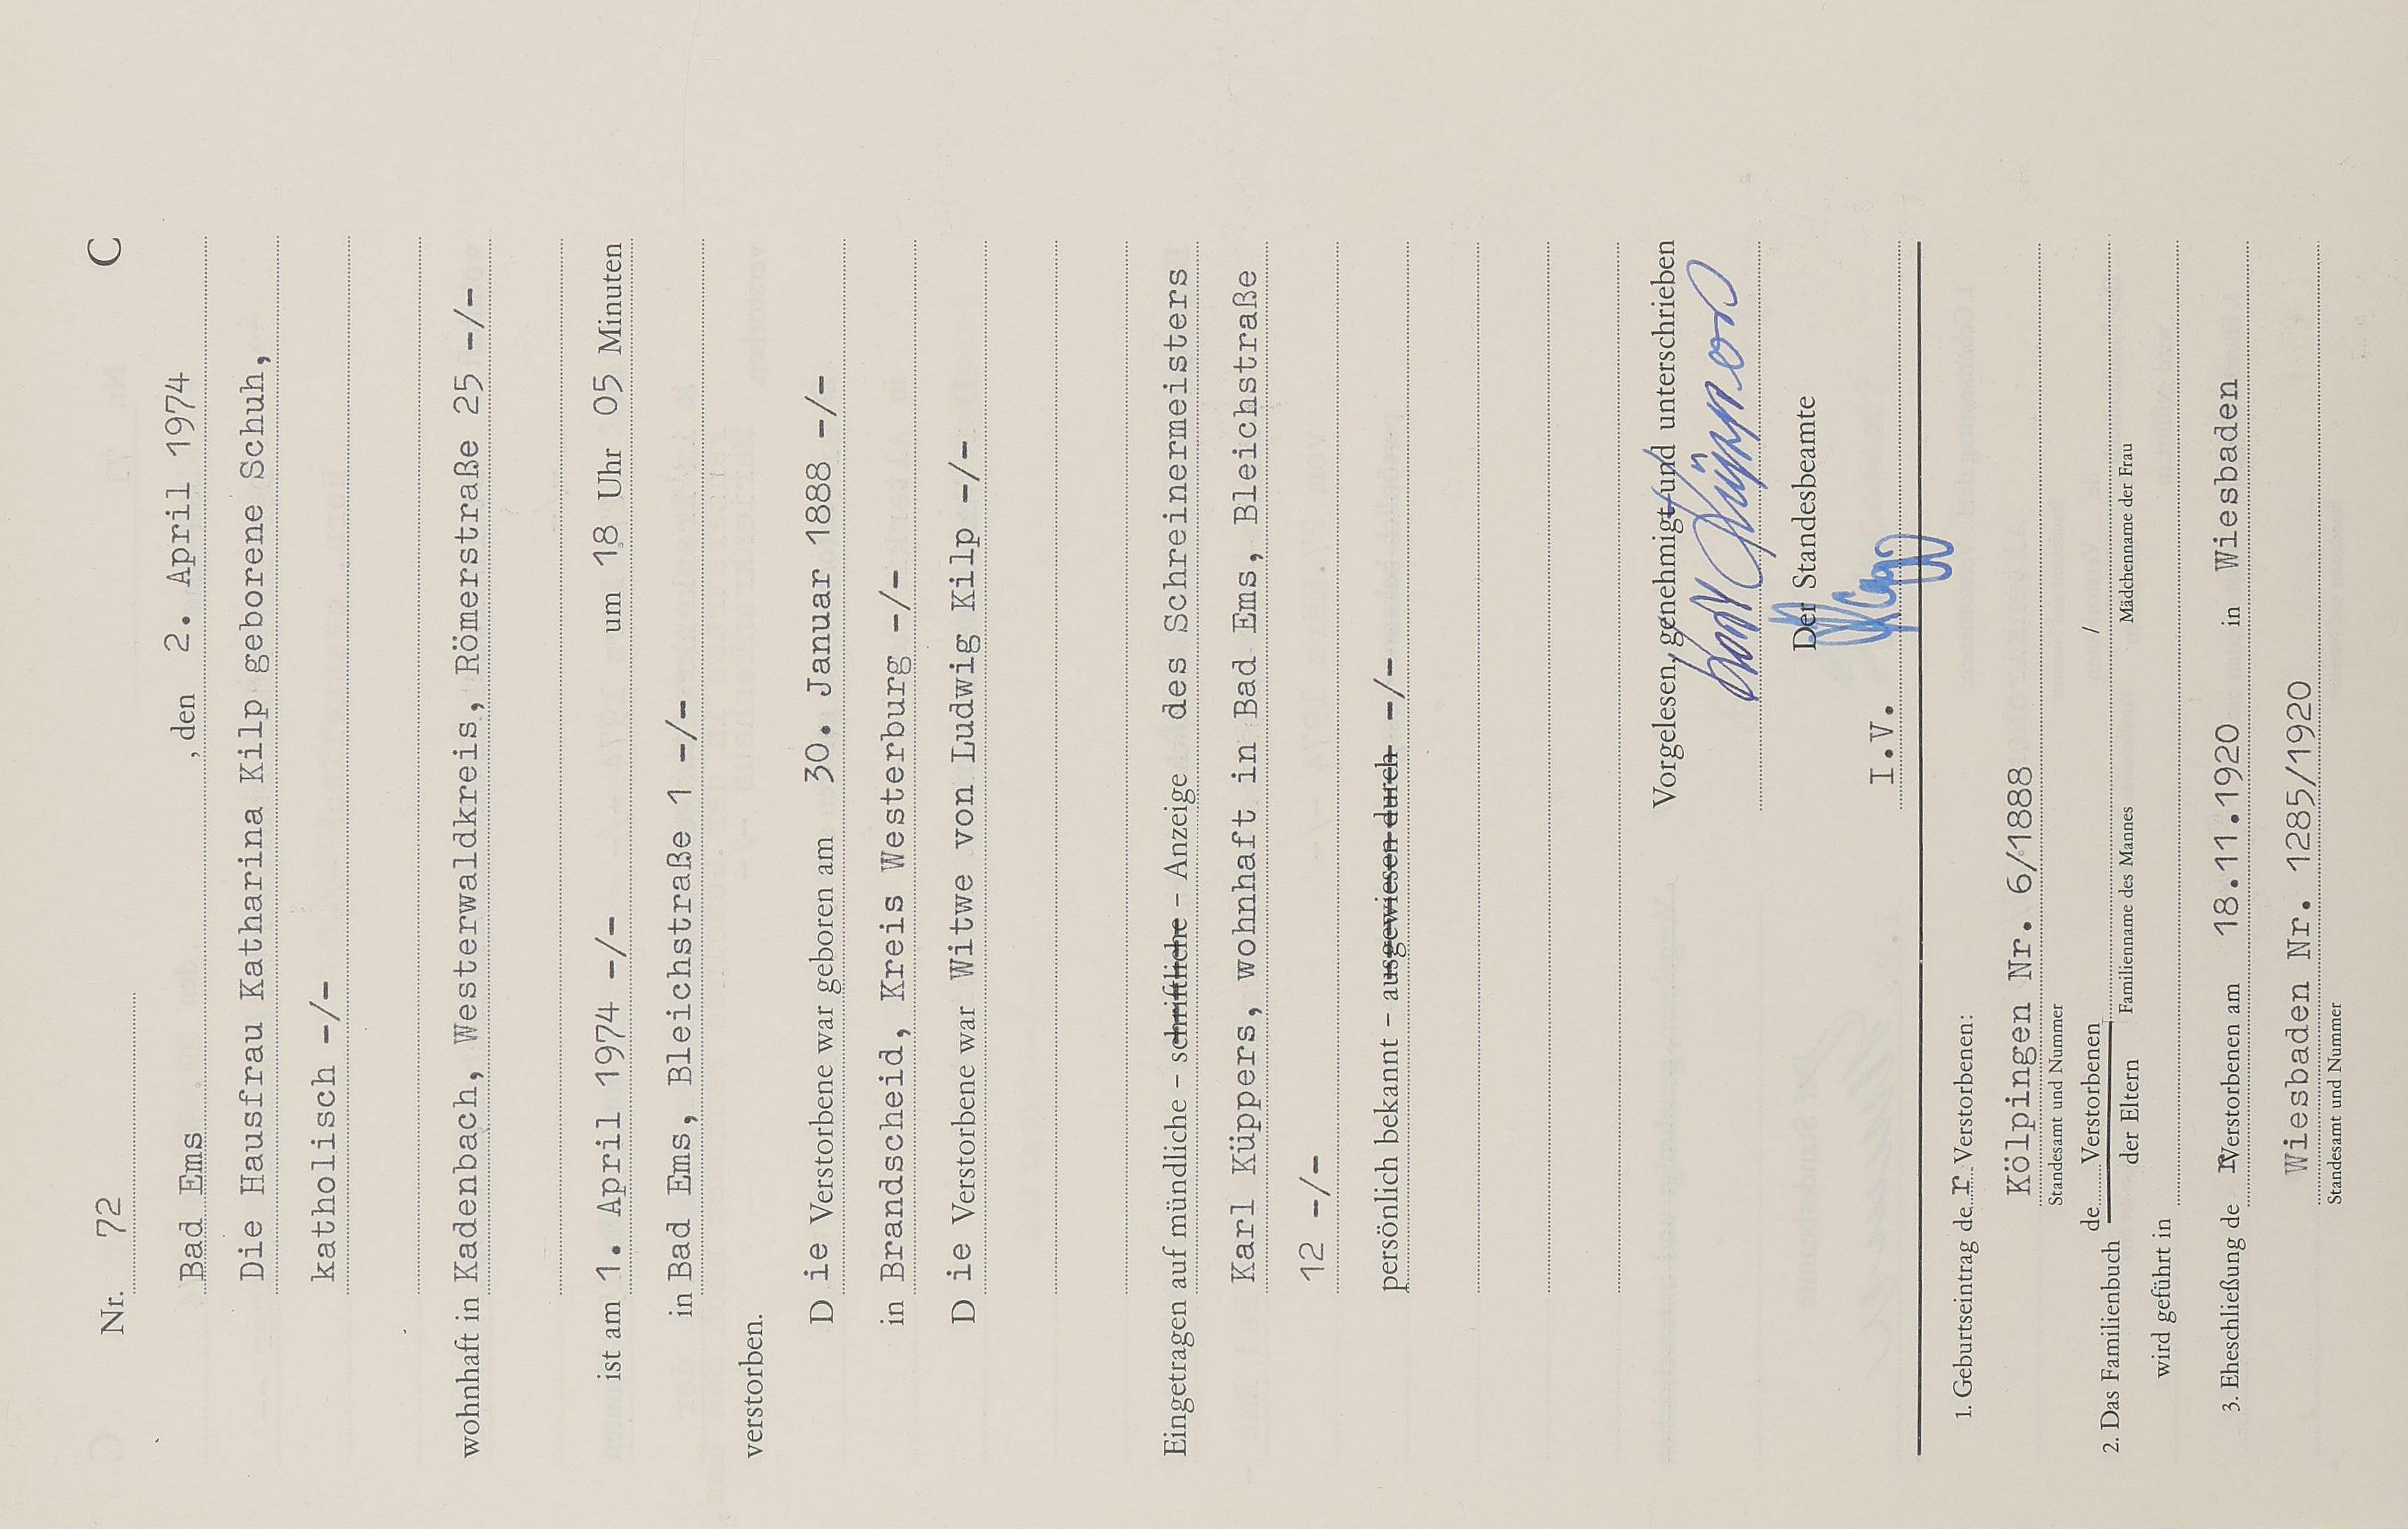 Nr. 72 C
Bad Ems , den 2. April 1974
Die Hausfrau Katharina Kilp geborene Schuh,
katholisch -/-
wohnhaft in Kadenbach, Westerwaldkreis, Römerstraße 25 -/-
ist am 1. April 1974 -/- um 18 Uhr 05 Minuten
in Bad Ems, Bleichstraße 1 -/-
verstorben.
D ie Verstorbene war geboren am 30. Januar 1888 -/-
in Brandscheid, Kreis Westerburg -/-
D ie Verstorbene war Witwe von Ludwig Kilp -/-
Eingetragen auf mündliche - schriftliche - Anzeige des Schreinermeisters
Karl Küppers, wohnhaft in Bad Ems, Bleichstraße
12 -/-
persönlich bekannt - ausgewiesen durch -/-
Vorgelesen, genehmigt und unterschrieben
Karl Küppers
Der Standesbeamte
I.V.
1. Geburtseintrag de r Verstorbenen:
Kölpingen Nr. 6/1888
Standesamt und Nummer
2. Das Familienbuch de Verstorbenen /
der Eltern Familienname des Mannes Mädchenname der Frau
wird geführt in
3. Eheschließung de r Verstorbenen am 18.11.1920 in Wiesbaden
Wiesbaden Nr. 1285/1920
Standesamt und Nummer